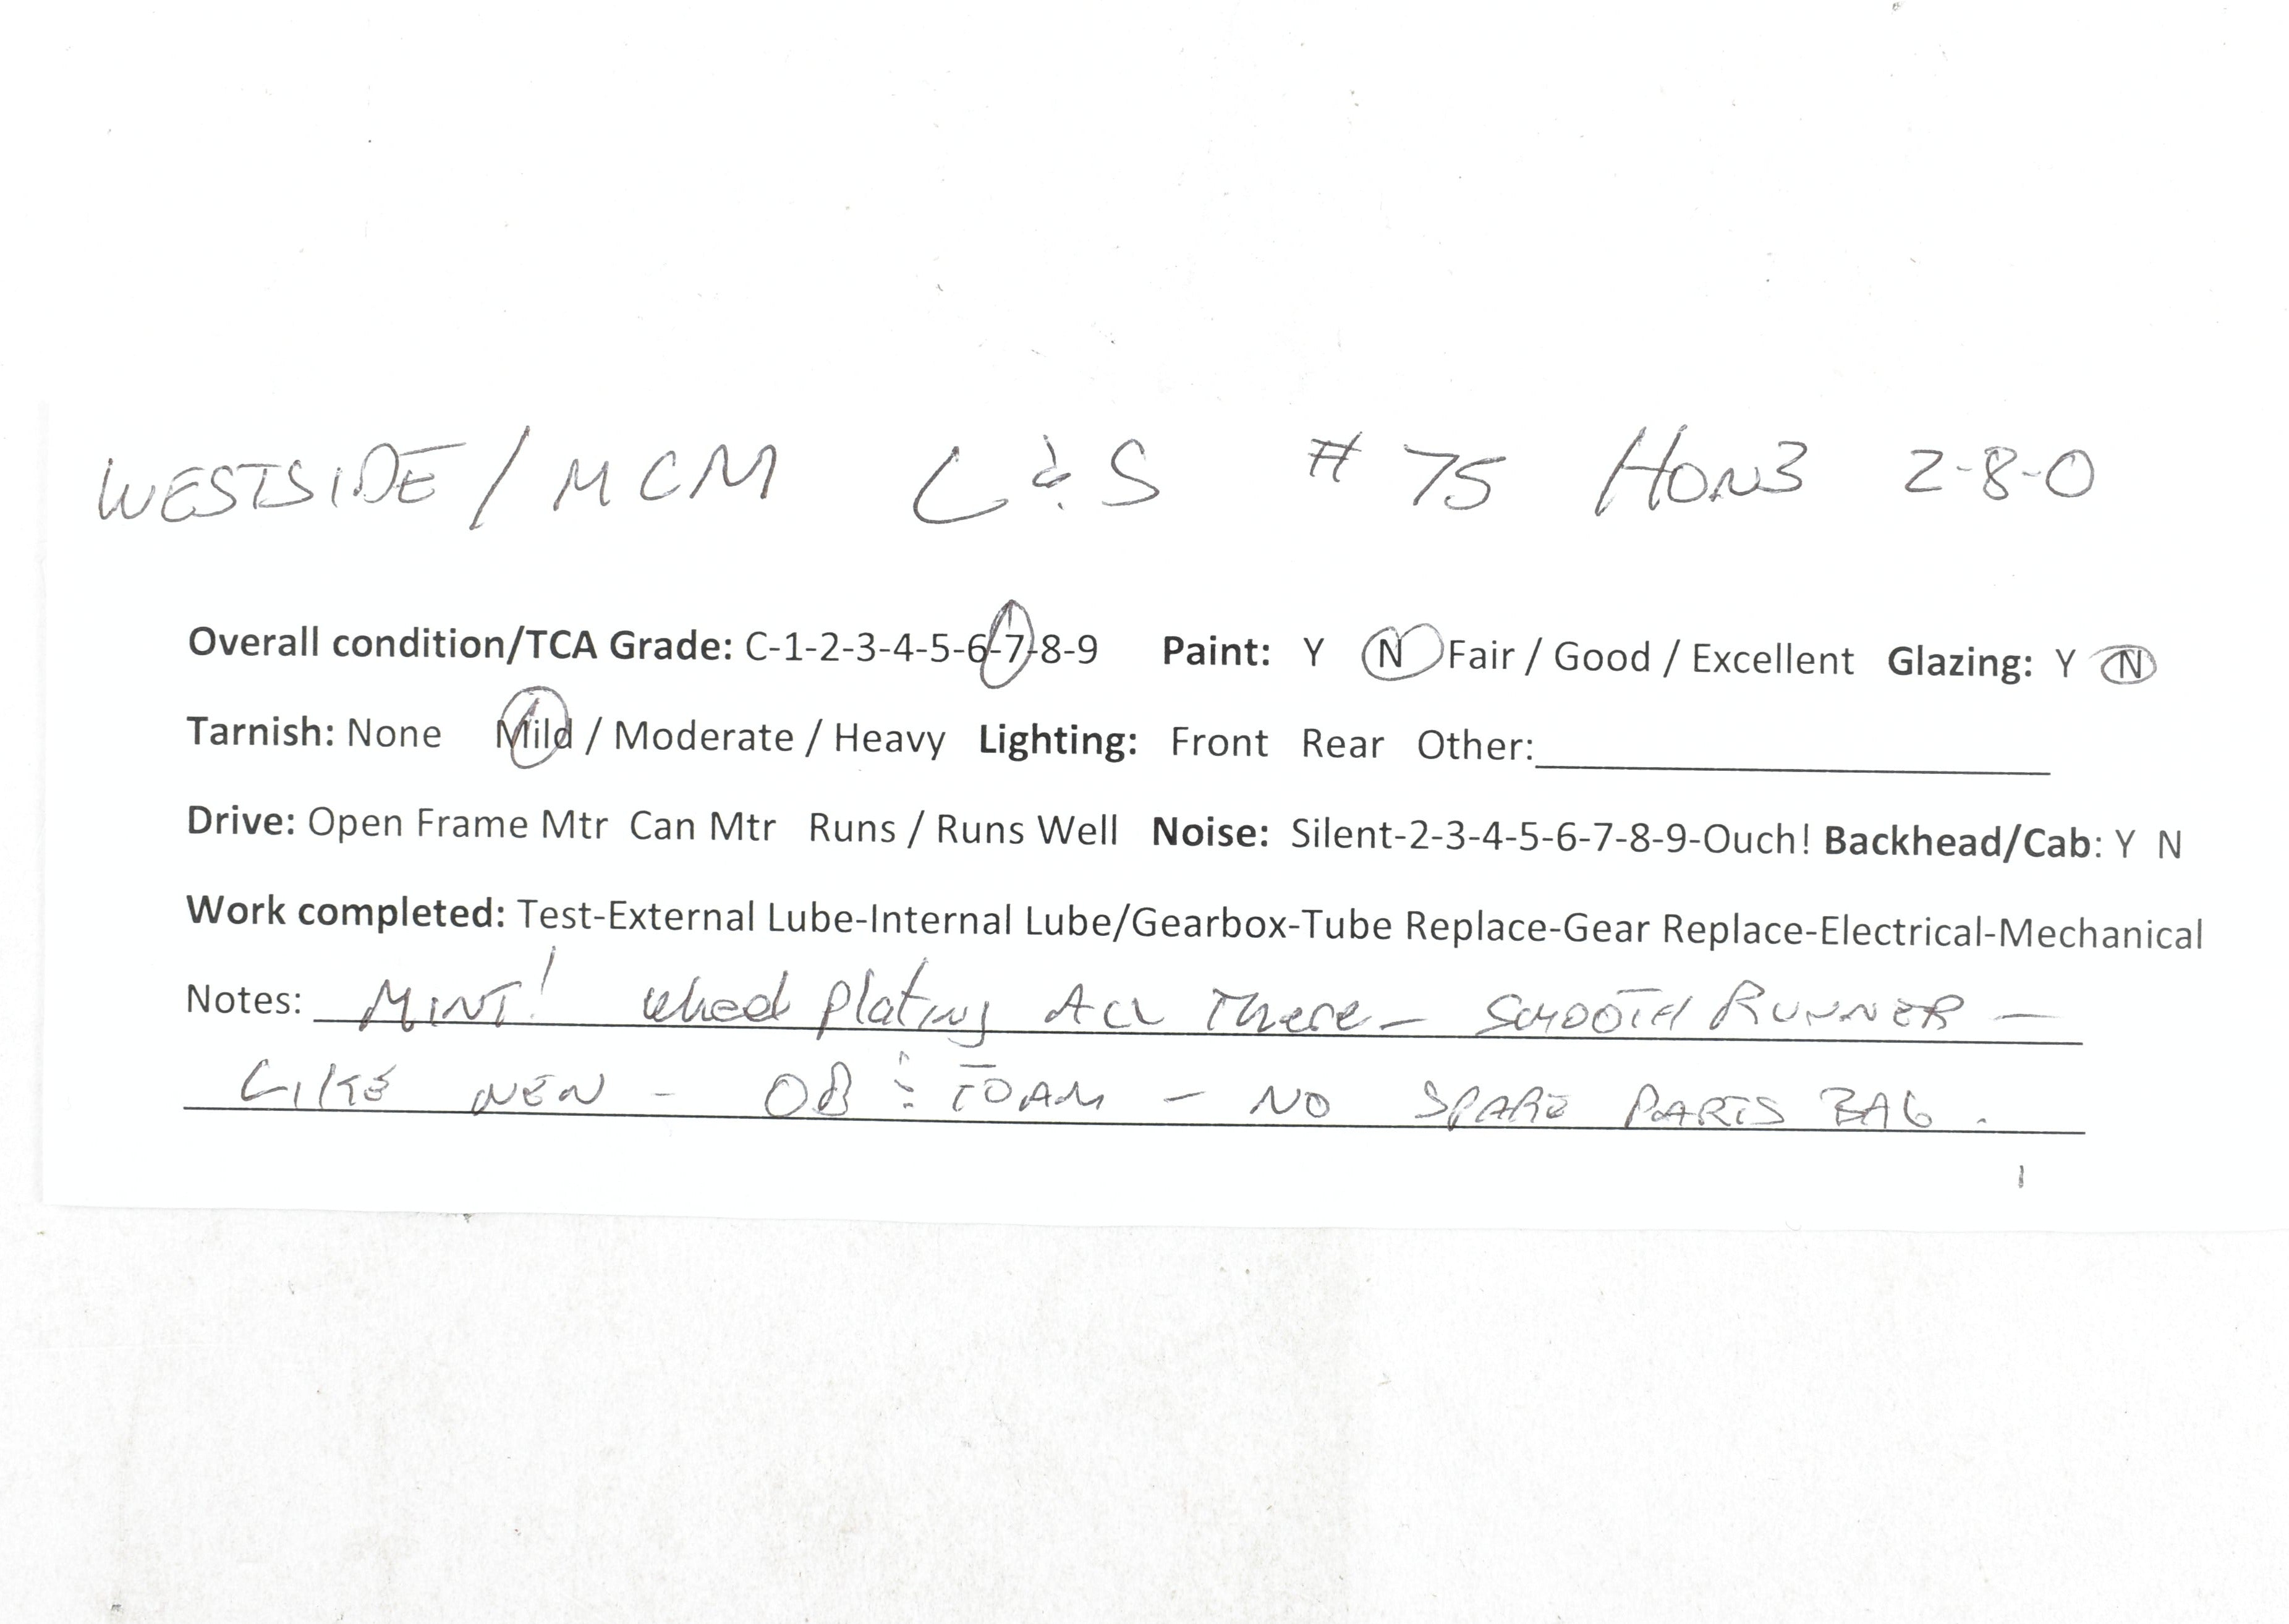 WESTSIDE / MCM C & S # 75 HOn3 2-8-0
Overall condition/TCA Grade: C-1-2-3-4-5-6-7-8-9 Paint: Y N Fair / Good / Excellent Glazing: Y N
Tarnish: None Mild / Moderate / Heavy Lighting: Front Rear Other:
Drive: Open Frame Mtr Can Mtr Runs / Runs Well Noise: Silent-2-3-4-5-6-7-8-9-Ouch! Backhead/Cab: Y N
Work completed: Test-External Lube-Internal Lube/Gearbox-Tube Replace-Gear Replace-Electrical-Mechanical
Notes: MINT! Wheel plating ALL There - SMOOTH RUNNER -
LIKE NEW - OB & FOAM - NO SPARE PARTS BAG.